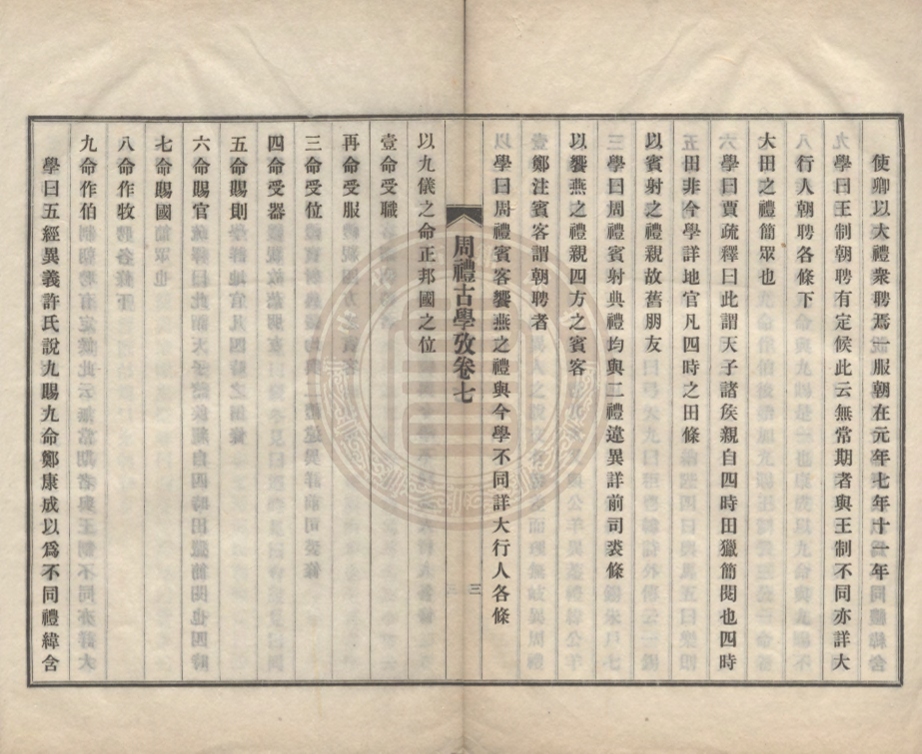 使卿以大禮衆聘焉一服朝在元年七年十一年
學曰王制朝聘有定候此云無常期者與王制不同亦詳大
行人朝聘各條下
大田之禮簡眾也
學曰賈疏釋曰此謂天子諸矦親自四時田獵簡閱也四時
田非今學詳地官凡四時之田條
以賓射之禮親故舊朋友
學曰周禮賓射典禮均與二禮違異詳前司裘條
以饗燕之禮親四方之賓客
鄭注賓客謂朝聘者
學曰周禮賓客饗燕之禮與今學不同詳大行人各條
周禮古學攷卷七
三
以九儀之命正邦國之位
壹命受職
再命受服
三命受位
四命受器
五命賜則
六命賜官
七命賜國
八命作牧
九命作伯
學曰五經異義許氏說九賜九命鄭康成以爲不同禮緯含